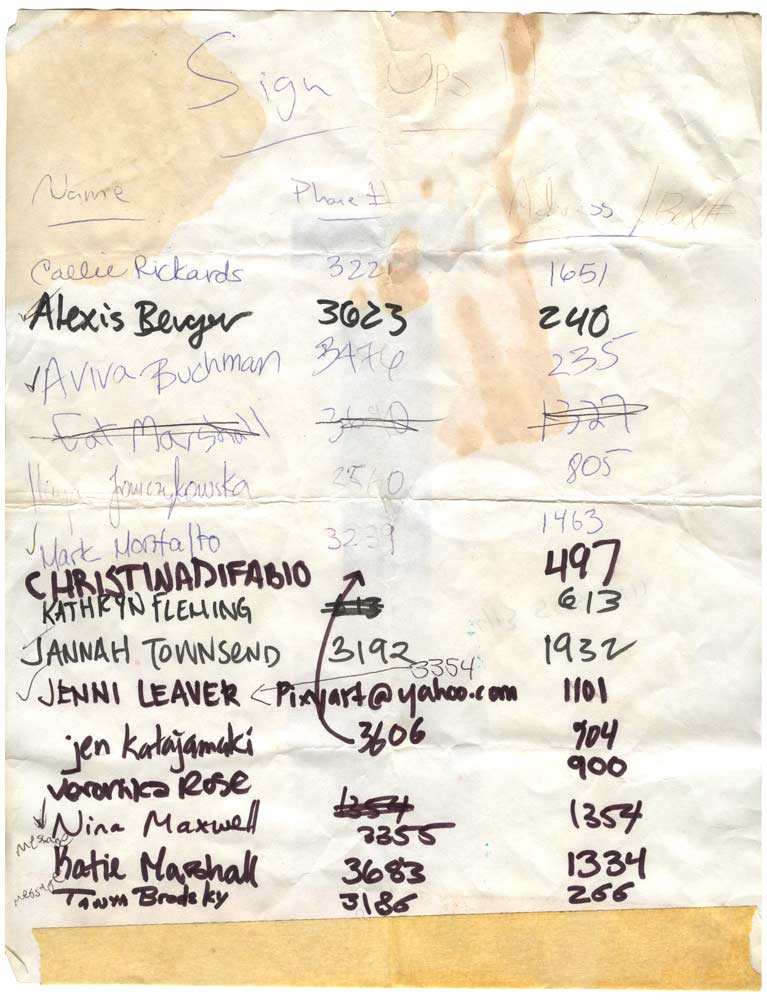 Sign Ups!
Name Phone # Address / Box #
Callie Rickards 3221 1651
Alexis Berger 3623 240
Aviva Buchman 3476 235
Cat Marshall 1327
805
Mark Montalto 3239 1463
CHRISTINA DIFABIO 497
KATHRYN FLEMING 613 613
JANNAH TOWNSEND 3192 1932
3354
JENNI LEAVER Pixyart@yahoo.com 1101
jen Katajamaki 3606 904
Veronika Rose 900
Nina Maxwell 1354 1354
message 3355
Katie Marshall 3683 1334
message Tawya Brodsky 3186 266